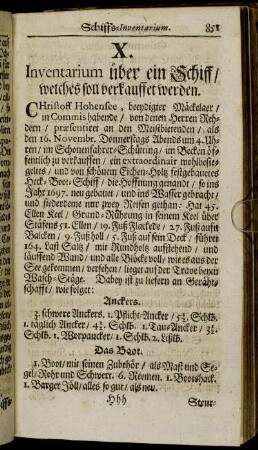 Schiffs-Inventarium. 851
X.
Inventarium über ein Schiff/
welches soll verkauffet werden.
CHristoff Hohensee, beeydigter Mäckelaer/
in Commis habende / von denen Herren Reh-
dern / præsentiret an den Meistbietenden / als
den 16. Novembr. Donnerstags Abends um 4. Uh-
ren / im Schonanfahrer-Schütting / im Becken öf-
fentlich zu verkauffen / ein extraordinair wohlbese-
geltes / und von schönem Eichen-Holtz festgebauetes
Heck-Boot-Schiff / die Hoffnung genandt / so ins
Jahr 1697. neu gebauet / und ins Wasser gebracht /
und siederdeme nur zwey Reisen gethan. Hat 45.
Ellen Keel / Grund-Rührung in seinem Keel über
Stäfens 51. Ellen / 19. Fuß Flackede / 27. Fuß aufft
Balcken / 9. Fuß holl / 5. Fuß auf sein Deck / führet
164. Last Saltz / mit Rundholtz aufstehend / und
läuffend Wand / und alle Blöcke voll / wie es aus der
See gekommen / versehen / lieget auf der Trave beym
Wasch-Stäge. Dabey ist zu liefern an Geräht-
schafft / wie folget:
Anckers.
3. schwere Anckers. 1. Pflicht-Ancker / 5¾. Schlb.
1. täglich Ancker / 4¾. Schlb. 1. Tau-Ancker / 3¾.
Schlb. 1. Worpancker / 1. Schlb. 2. Lißtb.
Das Boot.
1. Boot / mit seinen Zubehör / als Mast und Se-
gel / Rohr und Schwert. 6. Reemen. 1. Bootshack.
1. Barger Jöll / alles so gut / als neu.
Hhh Steur-